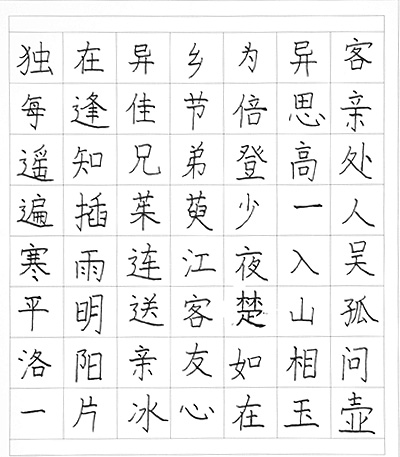 独在异乡为异客
每逢佳节倍思亲
遥知兄弟登高处
遍插茱萸少一人
寒雨连江夜入吴
平明送客楚山孤
洛阳亲友如相问
一片冰心在玉壶